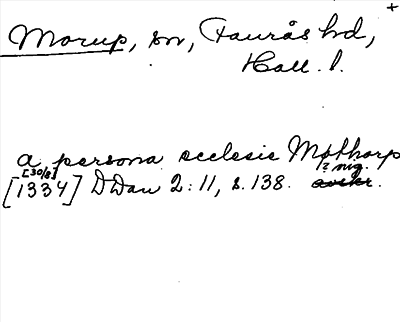 +
Morup, sn, Faurås hd,
Hall. l.
a persona ecclesie Møthorp
[30/8] ? mg.
[1334] DDan 2:11, s. 138.